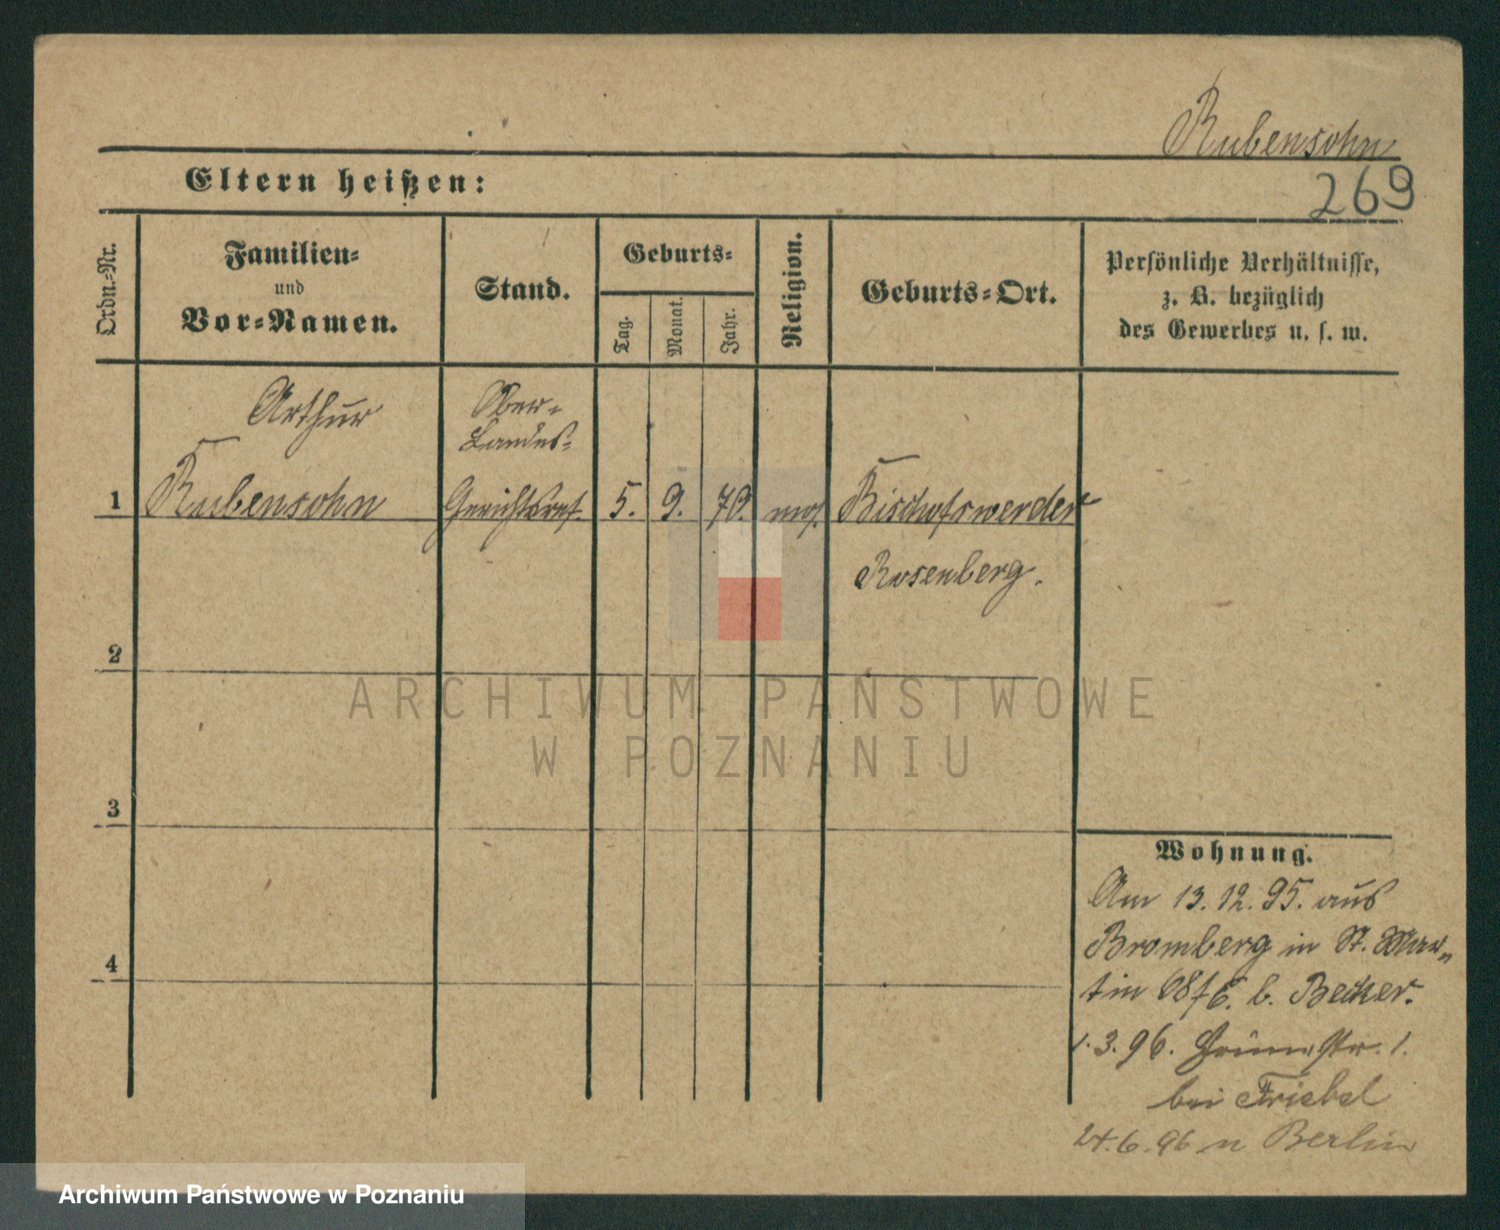 Rubensohn
269
Eltern heißen:
Ordn.-Nr.
Familien-
und
Vor-Namen.
Stand.
Geburts-
Tag.
Monat.
Jahr.
Religion.
Geburts-Ort.
Persönliche Verhältnisse,
z. B. bezüglich
des Gewerbes u. s. w.
Arthur
Ober-
Landes-
1 Rubensohn Gerichtsref. 5. 9. 70. mos. Bischofswerder
Rosenberg.
2
ARCHIWUM PAŃSTWOWE
W POZNANIU
3
Wohnung.
Am 13.12.95. aus
Bromberg in St. Mar-
4
tin 68/6. b. Becker.
1.3.96. Grünstr. 1.
bei Friebel
24.6.96 n Berlin
Archiwum Państwowe w Poznaniu